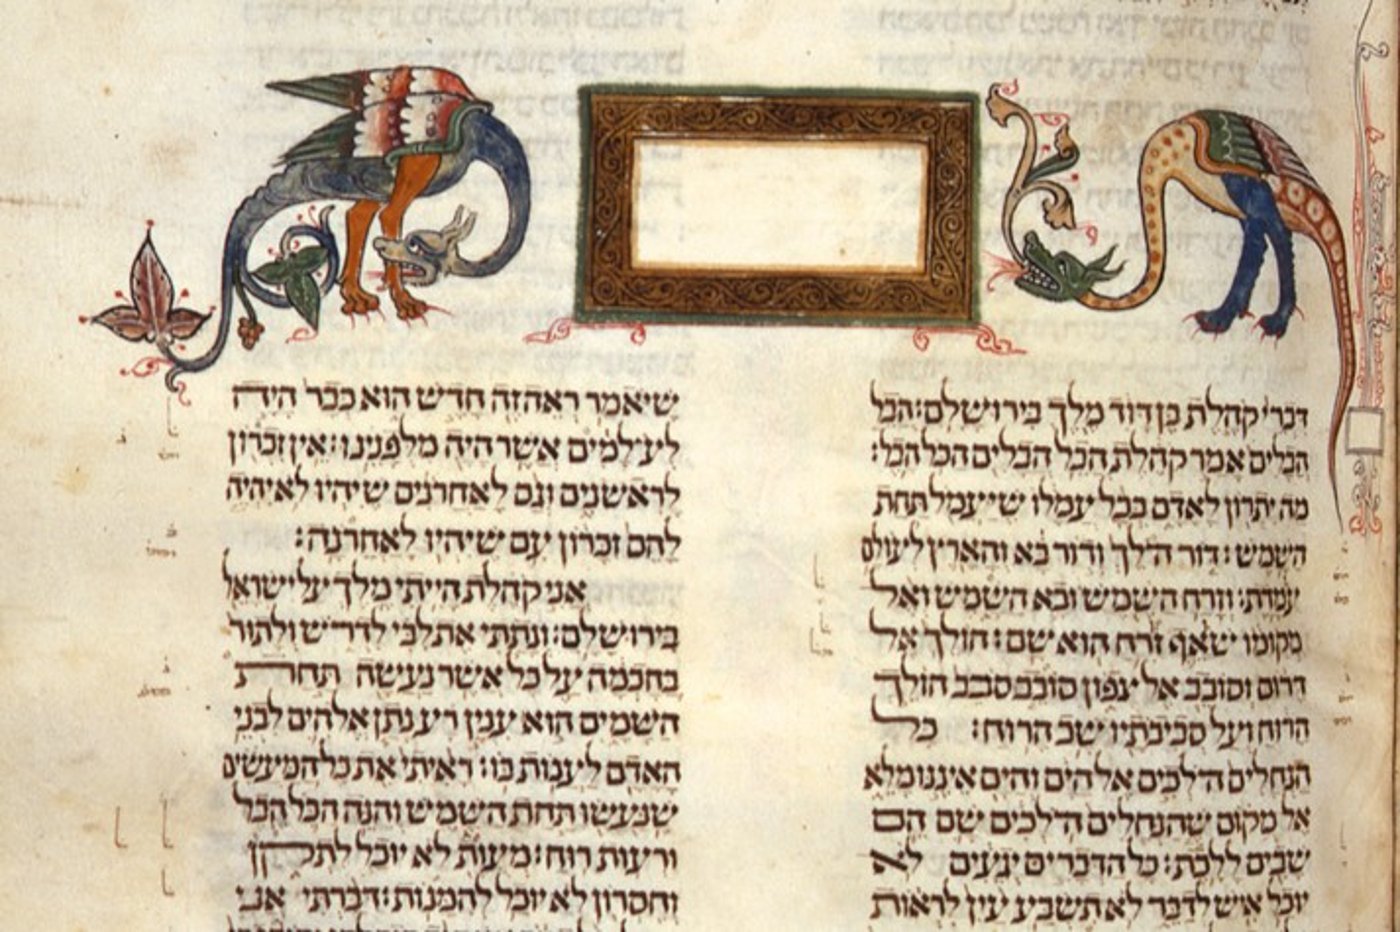 דברי קהלת בן דוד מלך בירושלם: הבל
הבלים אמר קהלת הבל הבלים הכל הבל:
מה יתרון לאדם בכל עמלו שיעמל תחת
השמש: דור הולך ודור בא והארץ לעולם
עמדת: וזרח השמש ובא השמש ואל
מקומו שואף זורח הוא שם: הולך אל
דרום וסובב אל צפון סובב סבב הולך
הרוח ועל סביבתיו שב הרוח: כל
הנחלים הלכים אל הים והים איננו מלא
אל מקום שהנחלים הלכים שם הם
שבים ללכת: כל הדברים יגעים לא
יוכל איש לדבר לא תשבע עין לראות
שיאמר ראה זה חדש הוא כבר היה
לעלמים אשר היה מלפנינו: אין זכרון
לראשנים וגם לאחרנים שיהיו לא יהיה
להם זכרון עם שיהיו לאחרנה:
אני קהלת הייתי מלך על ישראל
בירושלם: ונתתי את לבי לדרוש ולתור
בחכמה על כל אשר נעשה תחת
השמים הוא ענין רע נתן אלהים לבני
האדם לענות בו: ראיתי את כל המעשים
שנעשו תחת השמש והנה הכל הבל
ורעות רוח: מעות לא יוכל לתקן
וחסרון לא יוכל להמנות: דברתי אני